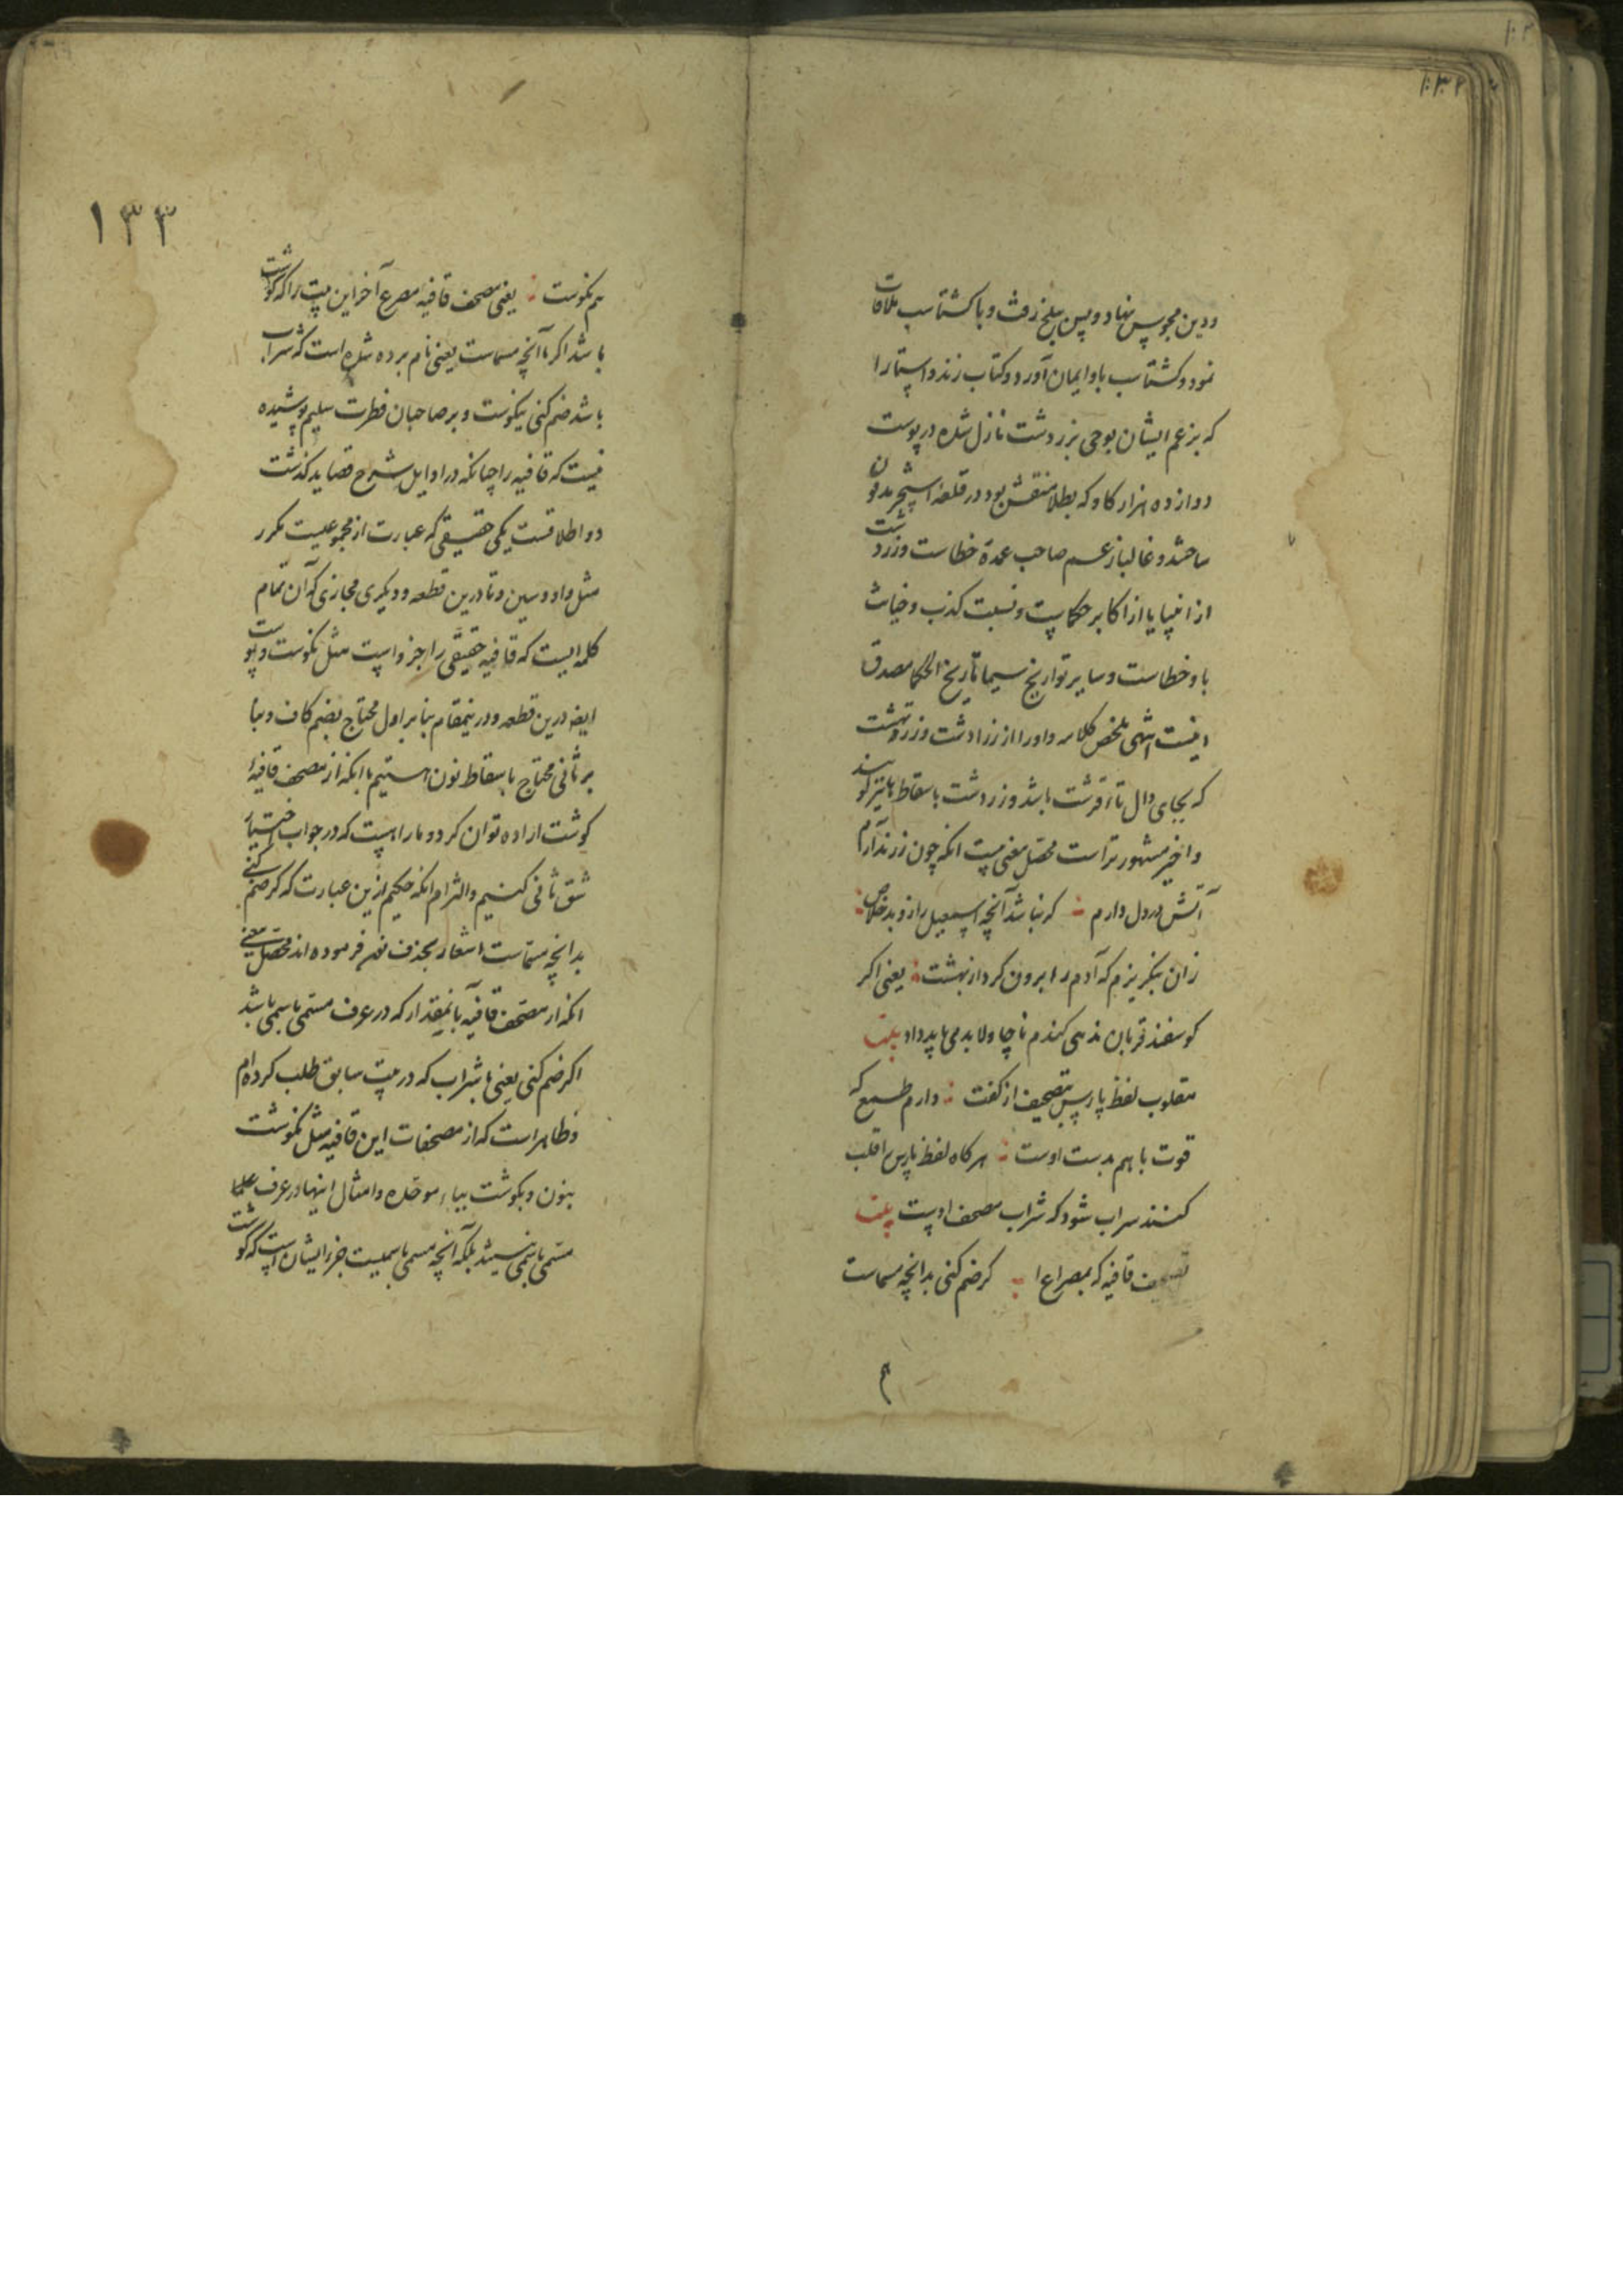 ودین مجوس نهاد و پس ببلخ رفت و با کشتاسب ملاقات
نمود و کشتاسب باو ایمان آورد و کتاب زند و استا را
که بزعم ایشان بوحی بزردشت نازل شده در پوست
دوازده هزار کاو که بطلا منقش بود در قلعه مدفون
ساختند و غالبا زعم صاحب عمدة خطاست و زردشت
از انبیا یا از اکابر حکماست و نسبت کذب و خیانت
باو خطاست و سایر تواریخ سیما تاریخ الحکما مصدق
اینست انتهی ملخص کلامه و اورا از زرادشت و زرتهشت
که بجای دال تا قرشت باشد و زردشت باسقاط ها نیز کویند
و اخیر مشهورتر است محصل معنی بیت انکه چون زر ندارم
آتش در دل دارم ؞ کر نباشد آنچه اسمعیل را زو بد خلاص ؞
زان بکریزم که آدم را برون کرد از بهشت ؞ یعنی اکر
کوسفند قربان ندهی کندم ناچار و لابد می باید داد بیت
مقلوب لفظ پارس بتصحیف از کفت ؞ دارم طمع که
قوت باهم بدست اوست ؞ هر کاه لفظ پارس را قلب
کنند سراب شود که شراب مصحف اوست بیت
تصحیف قافیه که بمصراع ا ؞ کر ضم کنی بدانچه مسماست
م
۱۳۳
هم نکوست ؞ یعنی مصحف قافیه مصرع آخر این بیت را که کوشت
باشد اکر با آنچه مسماست یعنی نام برده شده است که شراب
باشد ضم کنی نیکوست و بر صاحبان فطرت سلیم پوشیده
نیست که قافیه را چنانکه در اوایل شرح قصاید کذشت
دو اطلاقست یکی حقیقی که عبارت از مجموعیت مکرر
مثل واو و سین و تا درین قطعه و دیکری مجازی که آن تمام
کلمه ایست که قافیه حقیقی را جزو است مثل نکوست و پوست
ایضا درین قطعه و درینمقام بنا بر اول محتاج بضم کاف و بنا
بر ثانی محتاج باسقاط نون هستیم با انکه از مصحف قافیه
کوشت اراده توان کرد و ما را میست که در جواب اختیار
شق ثانی کنیم و التزام انکه حکیم ازین عبارت که کر ضم کنی
بدانچه مسماست اشعار بحذف نون فرموده اند محصل معنی
انکه از مصحف قافیه بآنمقدار که در عرف مسمی باسمی باشد
اکر ضم کنی یعنی با شراب که در بیت سابق طلب کرده ام
و ظاهر است که از مصحفات این قافیه مثل نکوشت
بنون و بکوشت بباء موحده و امثال اینها در عرف علما
مسمی باسمی نیستند بلکه آنچه مسمی باسمیست جزء ایشان است که کوشت